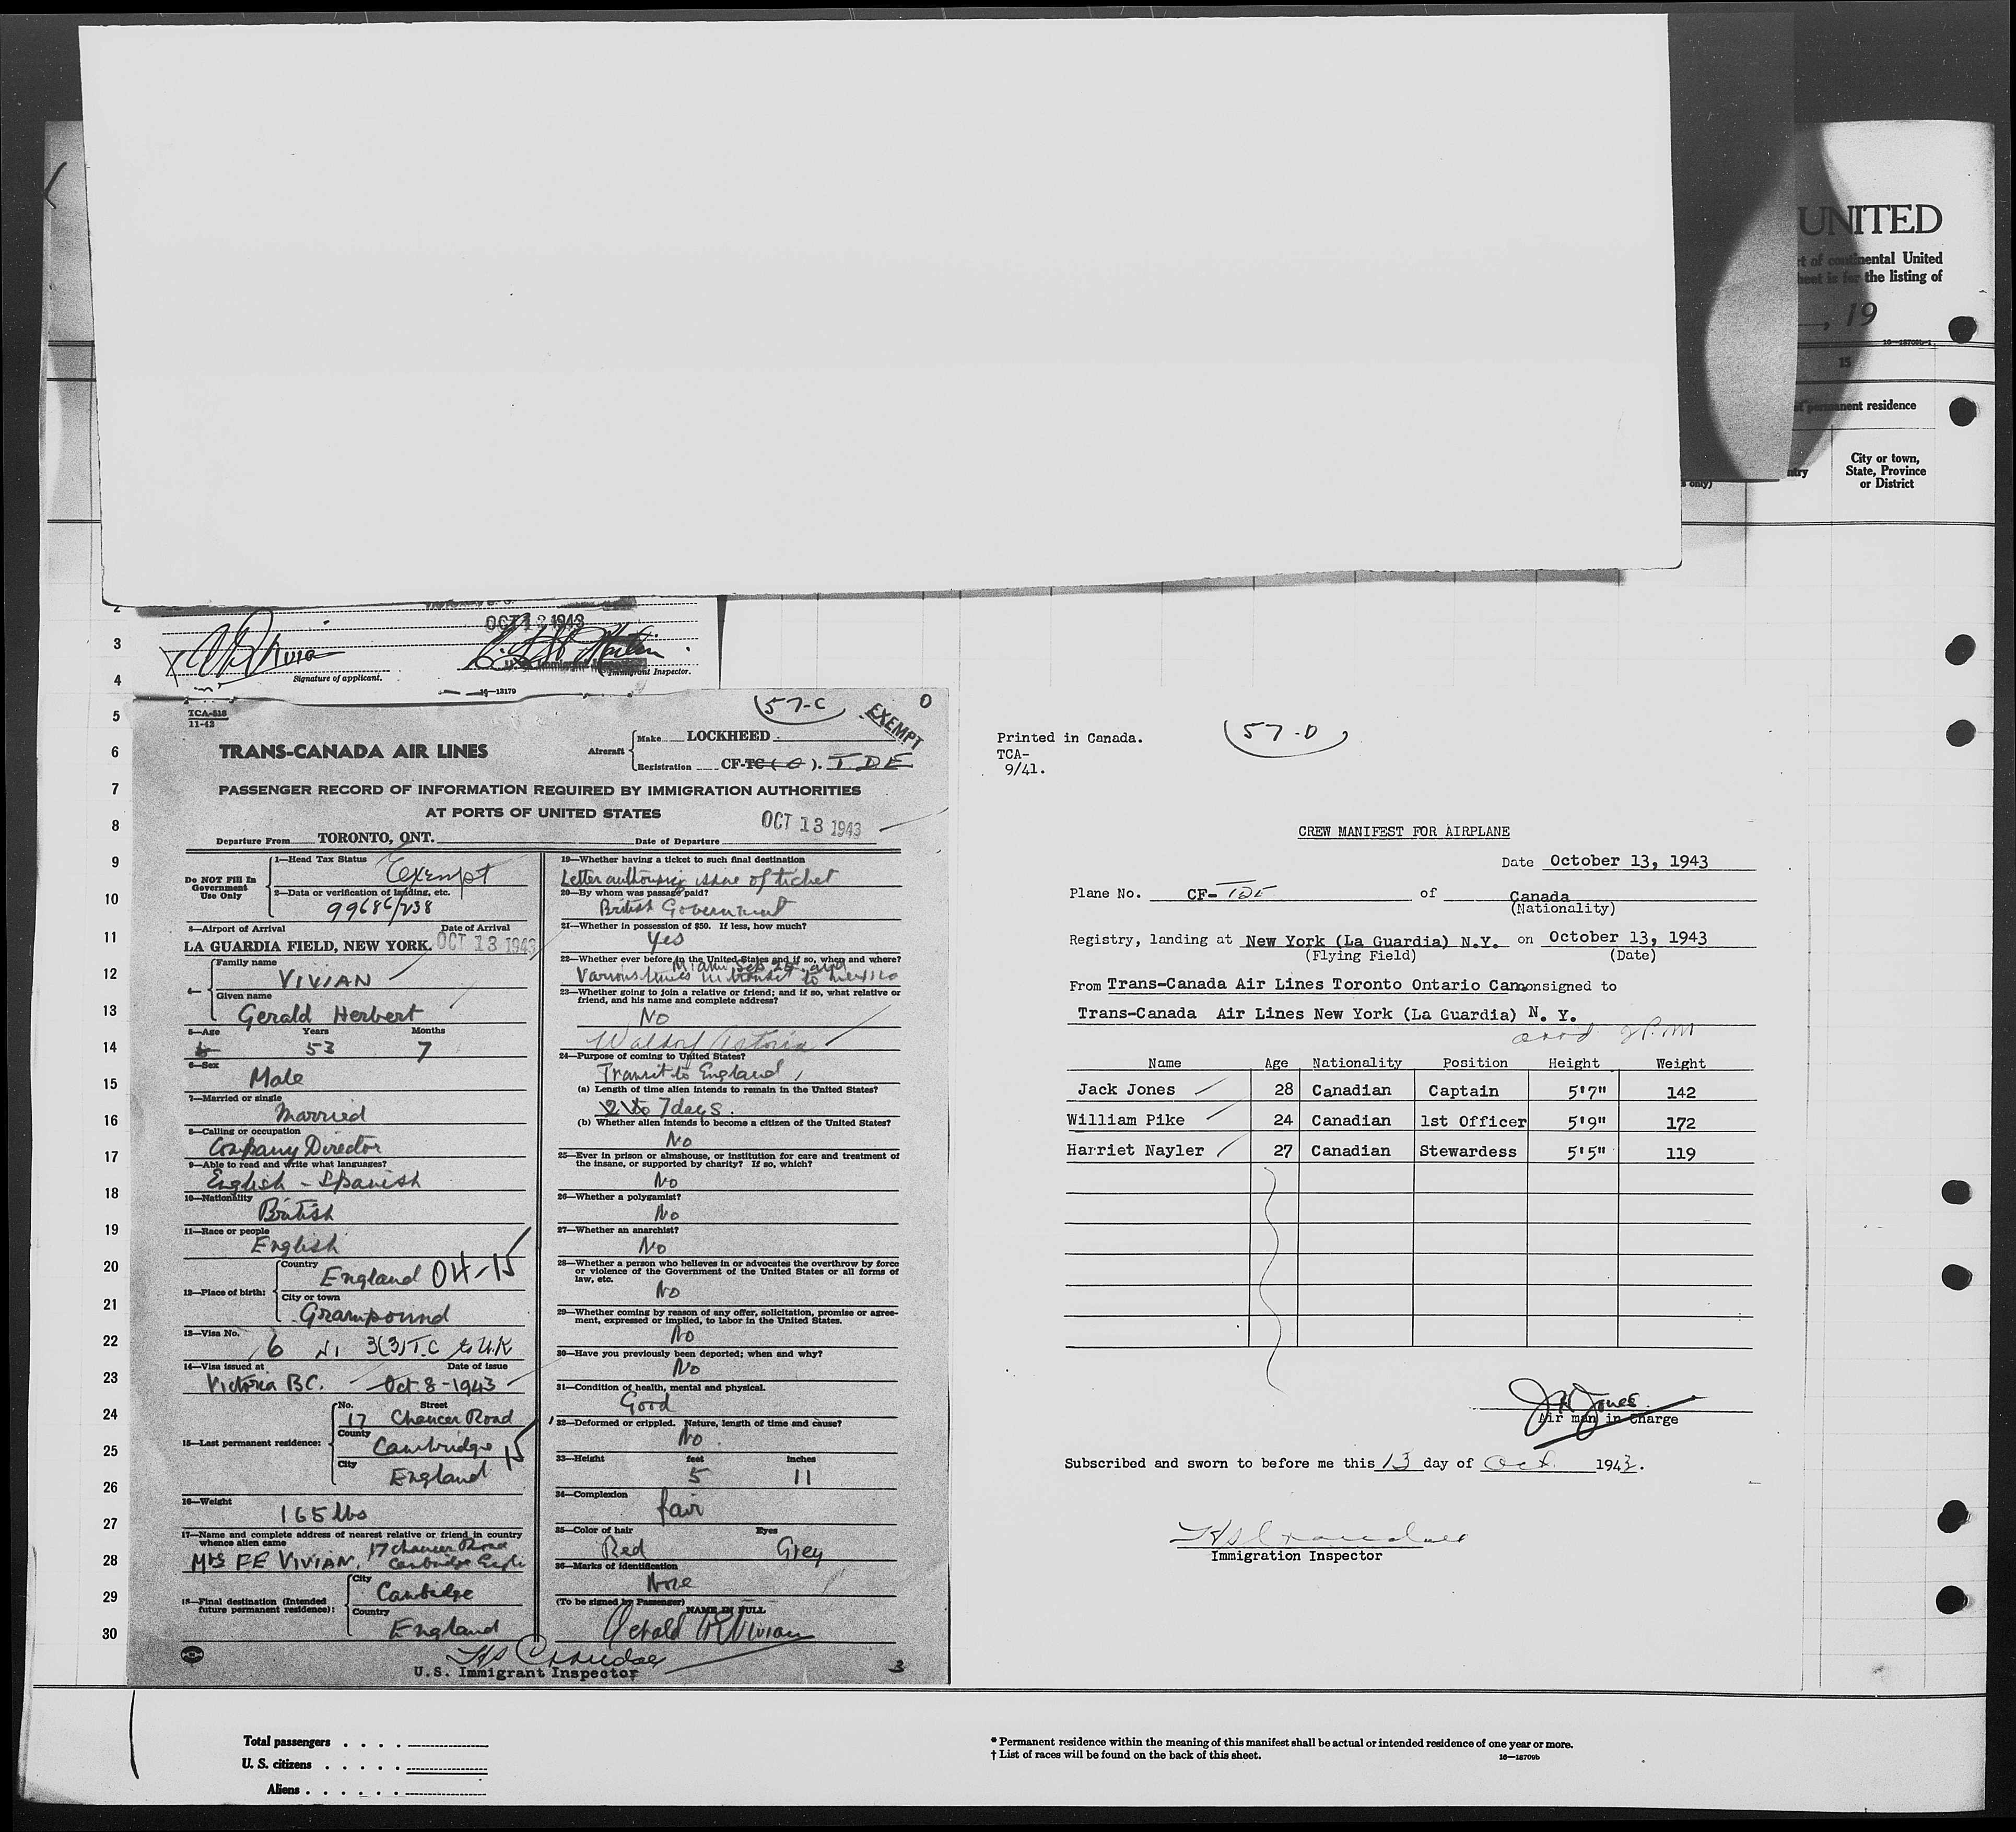 UNITED
rt of continental United
heet is for the listing of
, 19
16—18709b-1
15
of permanent residence
ntry
City or town,
State, Province
or District
s only)
2
3
4
5
6
7
8
9
10
11
12
13
14
15
16
17
18
19
20
21
22
23
24
25
26
27
28
29
30
OCT 12 1943
Signature of applicant.
Immigrant Inspector.
16—13179
TCA-518
11-42
57-C
EXEMPT
0
TRANS-CANADA AIR LINES
Aircraft
Make LOCKHEED
Registration CF-TC( ). TDE
PASSENGER RECORD OF INFORMATION REQUIRED BY IMMIGRATION AUTHORITIES
AT PORTS OF UNITED STATES
OCT 13 1943
Departure From TORONTO, ONT. Date of Departure
Do NOT Fill In
Government
Use Only
1—Head Tax Status
Exempt
2—Data or verification of landing, etc.
99686/238
3—Airport of Arrival Date of Arrival
LA GUARDIA FIELD, NEW YORK. OCT 13 1943
4—
Family name
VIVIAN
Given name
Gerald Herbert
5—Age Years Months
53 7
6—Sex
Male
7—Married or single
Married
8—Calling or occupation
Company Director
9—Able to read and write what languages?
English - Spanish
10—Nationality
British
11—Race or people
English
12—Place of birth:
Country
England 04-15
City or town
Grampound
13—Visa No.
6 3(3) T.C to U.K
14—Visa issued at Date of issue
Victoria BC. Oct 8-1943
15—Last permanent residence:
No. Street
17 Chaucer Road
County
Cambridge 15
City
England
16—Weight
165 lbs
17—Name and complete address of nearest relative or friend in country
whence alien came
Mrs F E VIVIAN, 17 Chaucer Road
Cambridge Engl
18—Final destination (Intended
future permanent residence):
City
Cambidge
Country
England
19—Whether having a ticket to such final destination
Letter authorising issue of ticket
20—By whom was passage paid?
British Government
21—Whether in possession of $50. If less, how much?
Yes
22—Whether ever before in the United States and if so, when and where?
Miami Sep 25 and
Various times in transit to Mexico
23—Whether going to join a relative or friend; and if so, what relative or
friend, and his name and complete address?
No
Waldorf Astoria
24—Purpose of coming to United States?
Transit to England
(a) Length of time alien intends to remain in the United States?
2 to 7 days.
(b) Whether alien intends to become a citizen of the United States?
No
25—Ever in prison or almshouse, or institution for care and treatment of
the insane, or supported by charity? If so, which?
No
26—Whether a polygamist?
No
27—Whether an anarchist?
No
28—Whether a person who believes in or advocates the overthrow by force
or violence of the Government of the United States or all forms of
law, etc.
No
29—Whether coming by reason of any offer, solicitation, promise or agree-
ment, expressed or implied, to labor in the United States.
No
30—Have you previously been deported; when and why?
No
31—Condition of health, mental and physical.
Good
32—Deformed or crippled. Nature, length of time and cause?
No.
33—Height feet inches
5 11
34—Complexion
fair
35—Color of hair Eyes
Red Grey
36—Marks of identification
None
(To be signed by Passenger)
NAME IN FULL
Gerald H Vivian
U.S. Immigrant Inspector
3
Printed in Canada.
TCA-
9/41.
57-D
CREW MANIFEST FOR AIRPLANE
Date October 13, 1943
Plane No. CF- TDE of Canada
(Nationality)
Registry, landing at New York (La Guardia) N.Y. on October 13, 1943
(Flying Field) (Date)
From Trans-Canada Air Lines Toronto Ontario Can consigned to
Trans-Canada Air Lines New York (La Guardia) N. Y.
Name Age Nationality Position Height Weight
Jack Jones 28 Canadian Captain 5'7" 142
William Pike 24 Canadian 1st Officer 5'9" 172
Harriet Nayler 27 Canadian Stewardess 5'5" 119
J Jones
Air man in Charge
Subscribed and sworn to before me this 13 day of Oct. 1943.
Immigration Inspector
Total passengers . . . .
U. S. citizens . . . . .
Aliens . . . . . .
* Permanent residence within the meaning of this manifest shall be actual or intended residence of one year or more.
† List of races will be found on the back of this sheet.
16—18709b